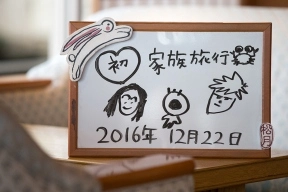 初 家族旅行
2016年 12月22日
松月